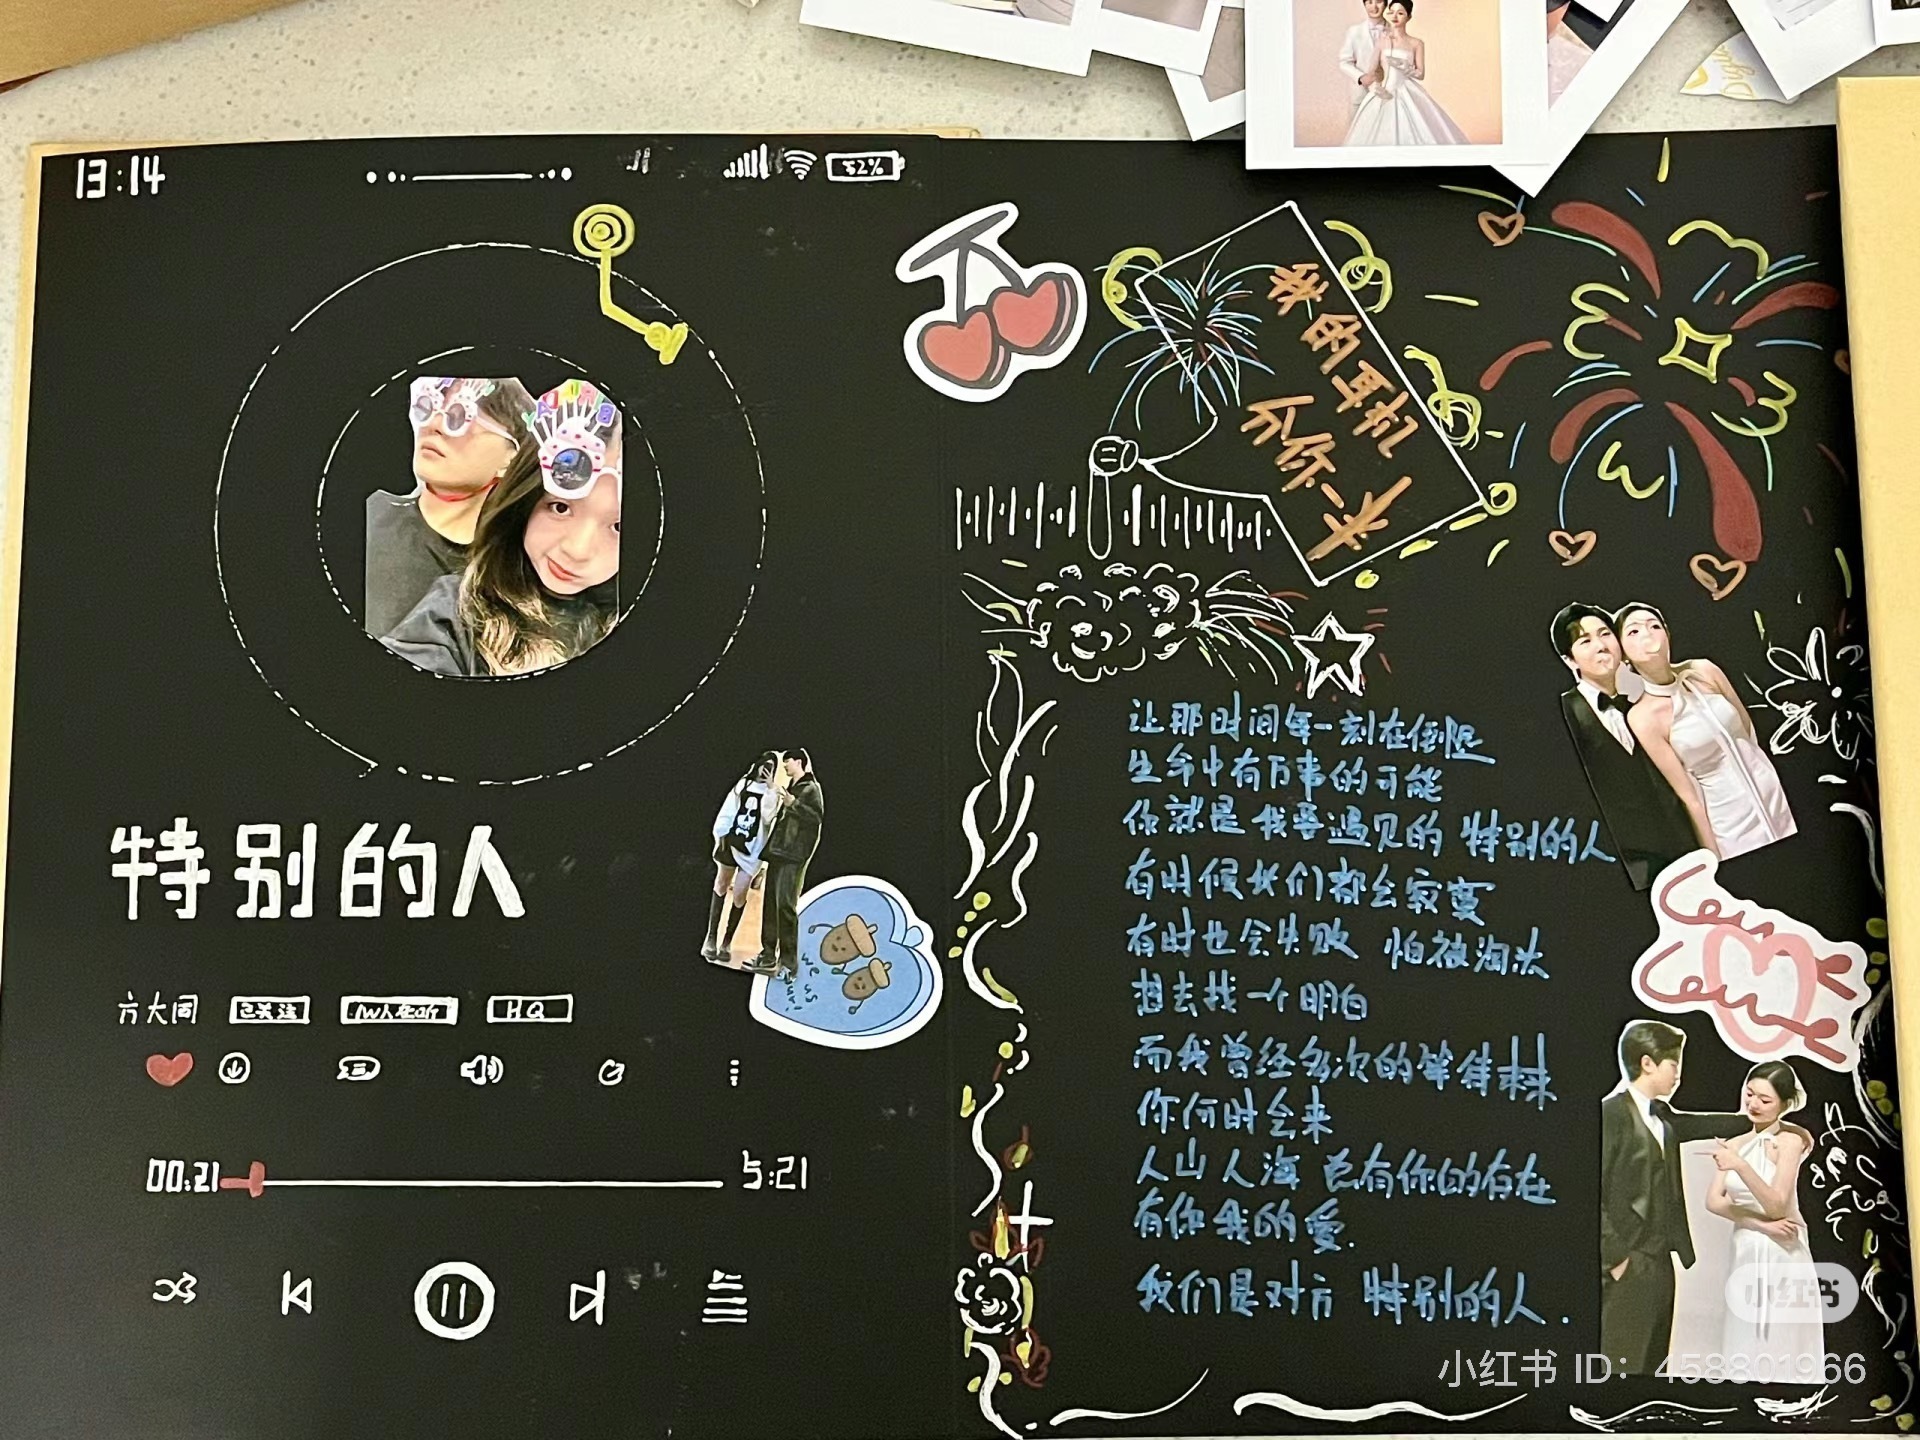 13:14
52%
特别的人
方大同
已关注
1W人在听
HQ
00:21
5:21
我的耳机
分你一半
让那时间每一刻在倒退
生命中有万事的可能
你就是我要遇见的 特别的人
有时候我们都会寂寞
有时也会失败 怕被淘汰
想去找一个明白
而我曾经多次的等待
你何时会来
人山人海 总有你的存在
有你我的爱.
我们是对方 特别的人.
Love
Love
小红书
小红书 ID: 458801966